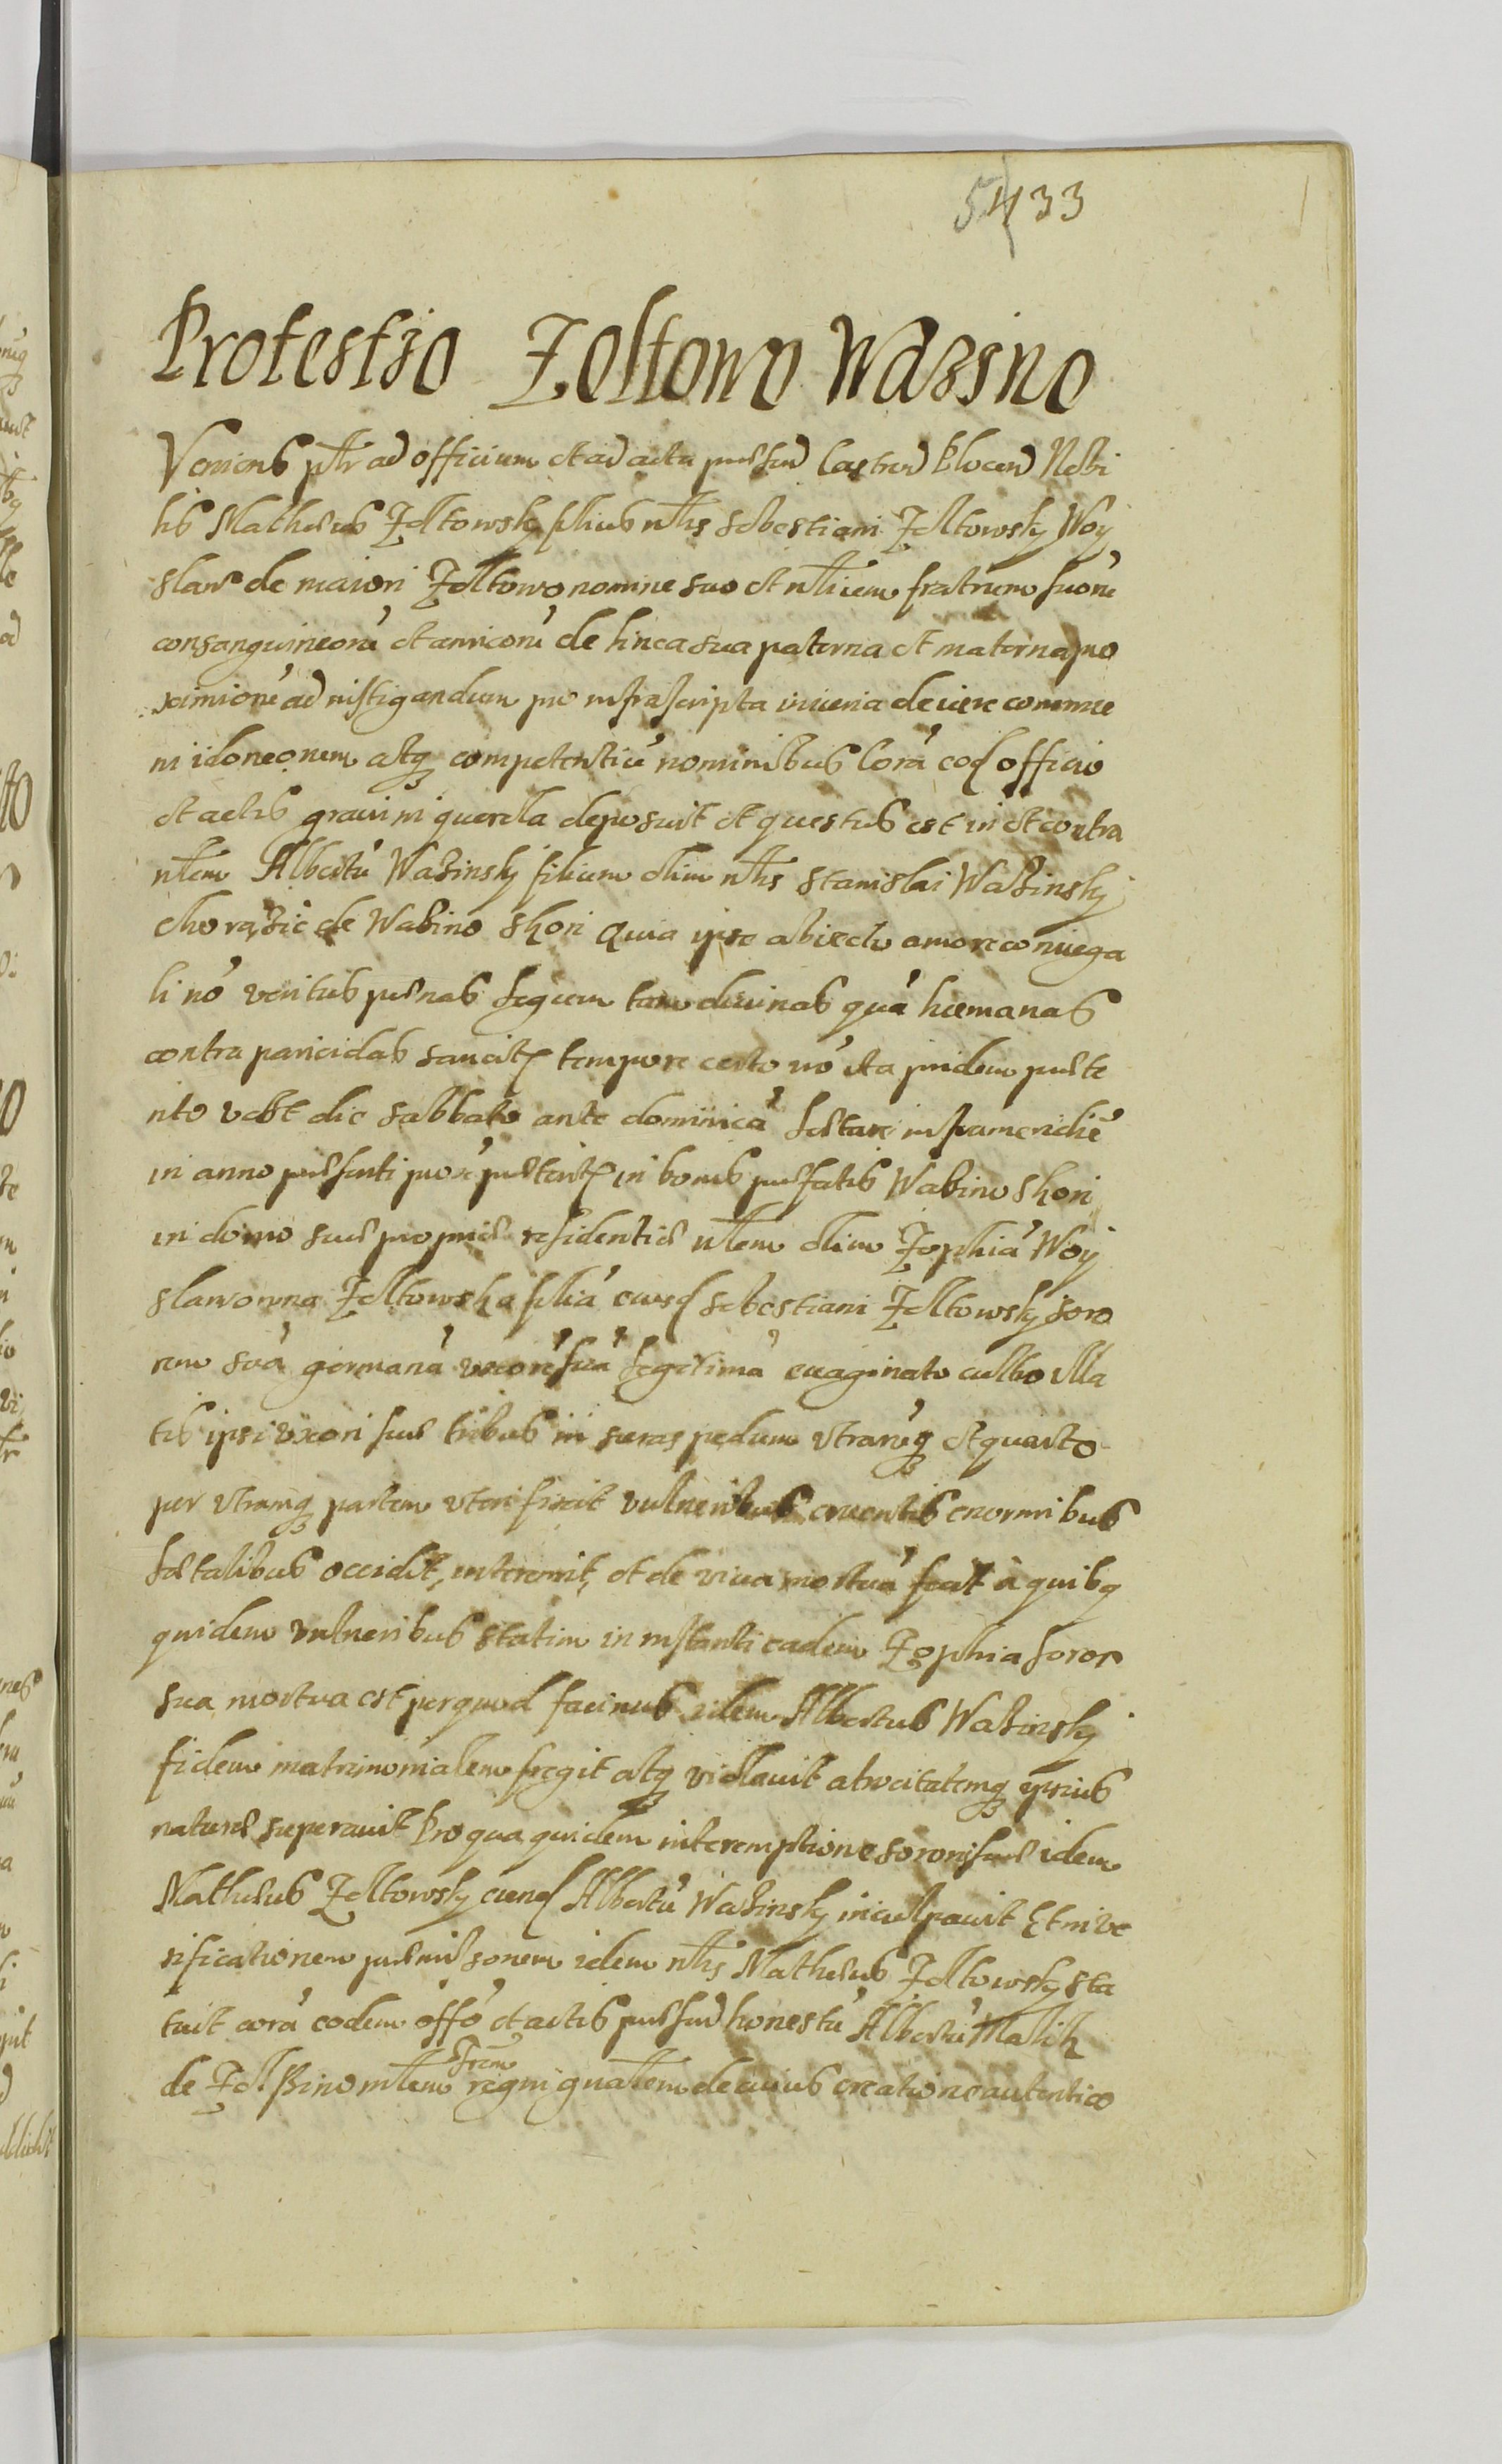 5433
Protestio Zoltowo Wazino
Veniens pltr ad officium et ad acta pnsia Castren Plocen Nobi
lis Mathæus Zoltowsky filius nlis Sebestiani Zoltowsky Woy
slaw de maiori Zoltowo nomine suo et nlium fratrum suorū
consanguineorū et amicorū de linea sua paterna et materna pro
ximiorū ad instigandum pro infrascripta iniuria de iure commu
ni idoneorum atq competentiū nominibus Corā eod officio
et actis graui in querela deposuit et questus est in et contra
nlem Albertū Wazinsky filium olim nlis Stanislai Wazinsky
chorązic de Wazino Skori Quia ipse abiecto amore coniuga
li nō veritus pænas legum tam diuinas quā humanas
contra paricidas sancitas tempore certo nō ita pridem præte
rito vest die Sabbato ante dominicā Lætare infra meridiē
in anno præsenti proxē præterito in bonis præfatis Wazino Skori
in domo suæ propriæ residentiæ nlem olim Zophiā Woy
slawowna Zoltowska filiā eiusd Sebestiani Zoltowsky soro
rem suā germanā vxorē suā legitimā euaginato cultro illa
tis ipsi vxori suæ tribus in suras pedum vtrarūq et quarto
per vtramq partem vteri fixit vulneribus cruentis enormibus
letalibus occidit, interemit, et de viua mortuā fecit à quibq
quidem vulneribus statim in instanti eadem Zophia soror
sua mortua est per quod facinus idem Albertus Wazinsky
fidem matrimonialem fregit atq violauit atrocitatemq ipsius
naturæ superauit Pro qua quidem interemptione sororis suæ idem
Mathæus Zoltowsky eund Albertū Wazinsky inculpauit Et in ve
rificationem præmissorum idem nlis Mathæus Zoltowsky sta
tuit corā eodem offō et actis præsen honestū Albertū Malik
de Zol Bino mlem
regni gnalem de cuius creatione autentica